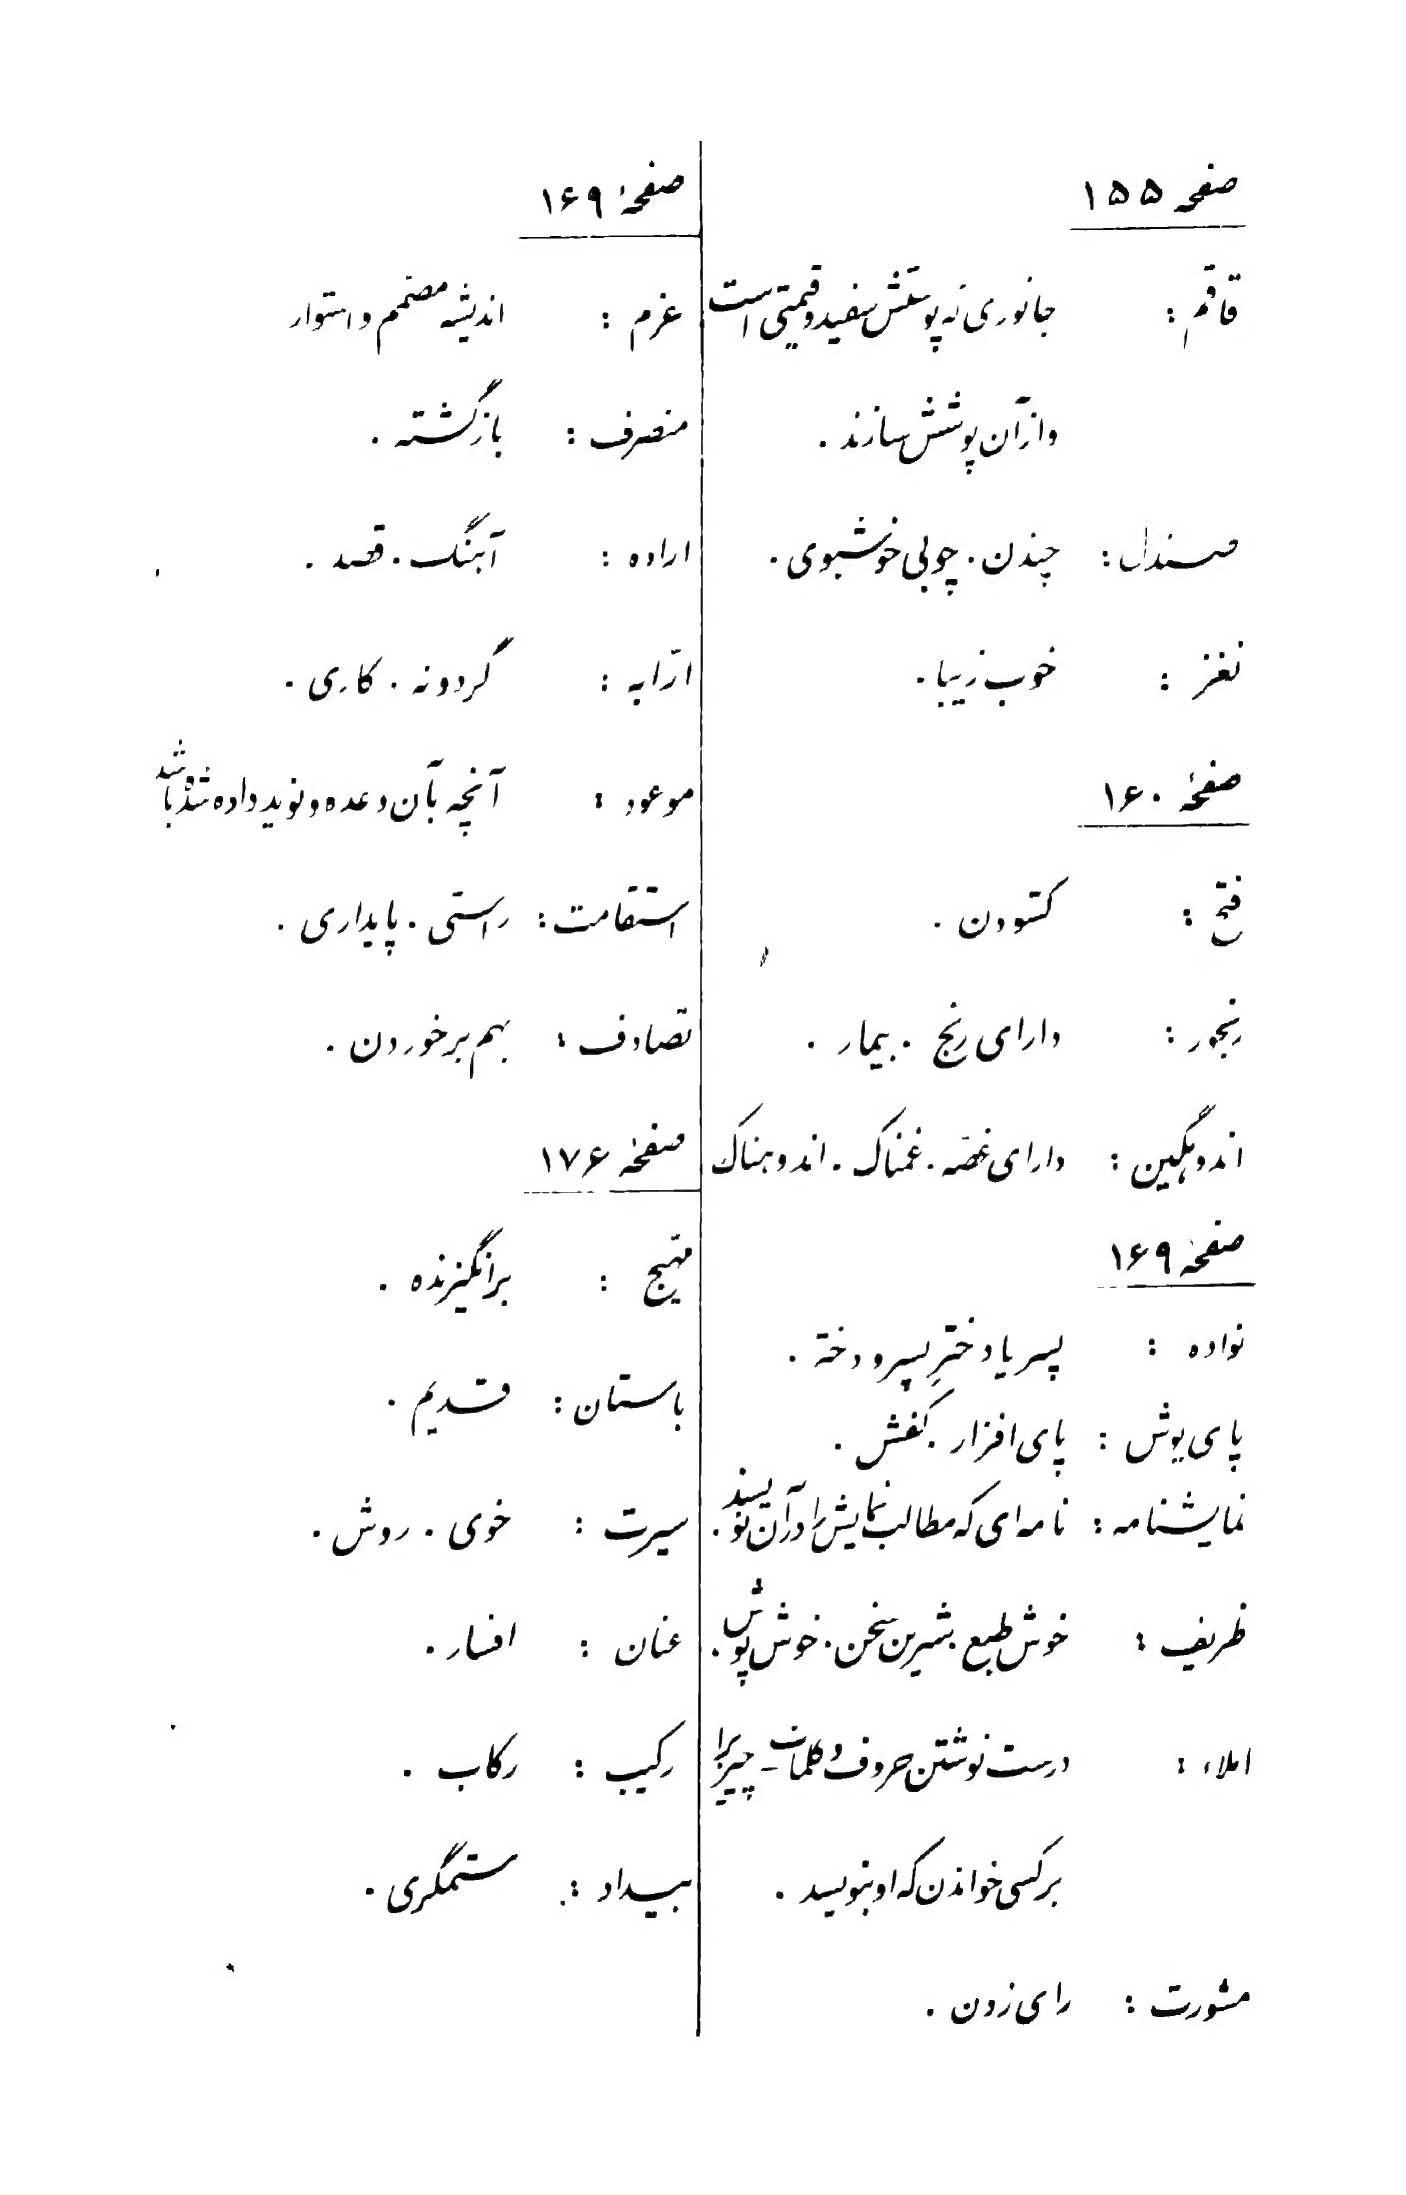 صفحه ۱۵۵
قاقم : جانوری که پوستش سفید و قیمتی است
و از آن پوشش سازند .
صندل : چندن . چوبی خوشبوی .
نغز : خوب زیبا .
صفحهٔ ۱۶۰
فتح : گشودن .
رنجور : دارای رنج . بیمار .
اندوهگین : دارای غصّه . غمناک . اندوهناک
صفحهٔ ۱۶۹
نواده : پسر یا دخترِ پسر و دختر .
پای پوش : پای افزار . کفش .
نمایشنامه : نامه ای که مطالب نمایش را در آن نویسند .
ظریف : خوش طبع . شیرین سخن . خوش پوش .
املاء : درست نوشتن حروف و کلمات - چیزی را
بر کسی خواندن که او بنویسد .
مشورت : رای زدن .
صفحهٔ ۱۶۹
عزم : اندیشه مصمّم و استوار
منصرف : بازگشته .
اراده : آهنگ . قصد .
ارّابه : گردونه . گاری .
موعود : آنچه بآن وعده و نوید داده شده باشد
استقامت : راستی . پایداری .
تصادف : بهم برخوردن .
صفحهٔ ۱۷۶
مهیّج : برانگیزنده .
باستان : قدیم .
سیرت : خوی . روش .
عنان : افسار .
رکیب : رکاب .
بیداد : ستمگری .